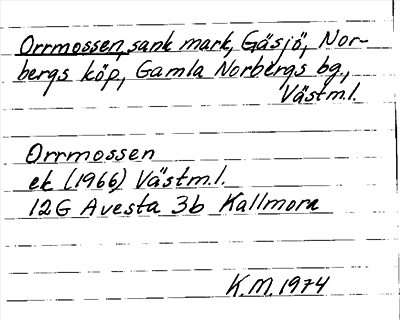 Orrmossen, sank mark, Gäsjö, Nor-
bergs köp, Gamla Norbergs bg.,
Västml.
Orrmossen
ek (1966) Västm.l.
12G Avesta 3b Kallmora
K.M. 1974